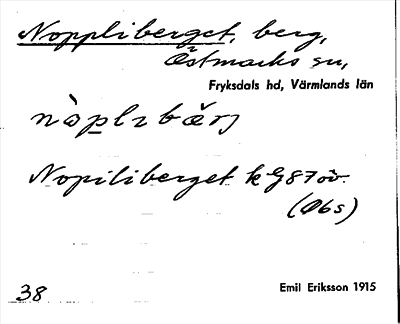 Noppliberget, berg,
Östmarks sn,
Fryksdals hd, Värmlands län
nòplɩbærj
Nopiliberget kG87öv.
(Obs)
38
Emil Eriksson 1915